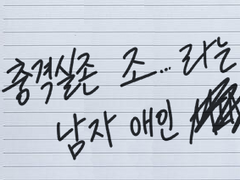 충격실존 조... 라는
남자 애인